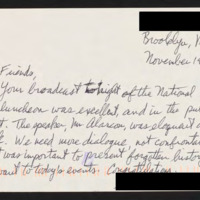 Brooklyn, N
November 19
Friends,
Your broadcast tonight of the National
luncheon was excellent, and in the pu
t. The speaker, Mr Alarcon, was eloquent
. We need more dialogue, not confronta
t was important to present forgotten history
vant to today's events. Congratulations.